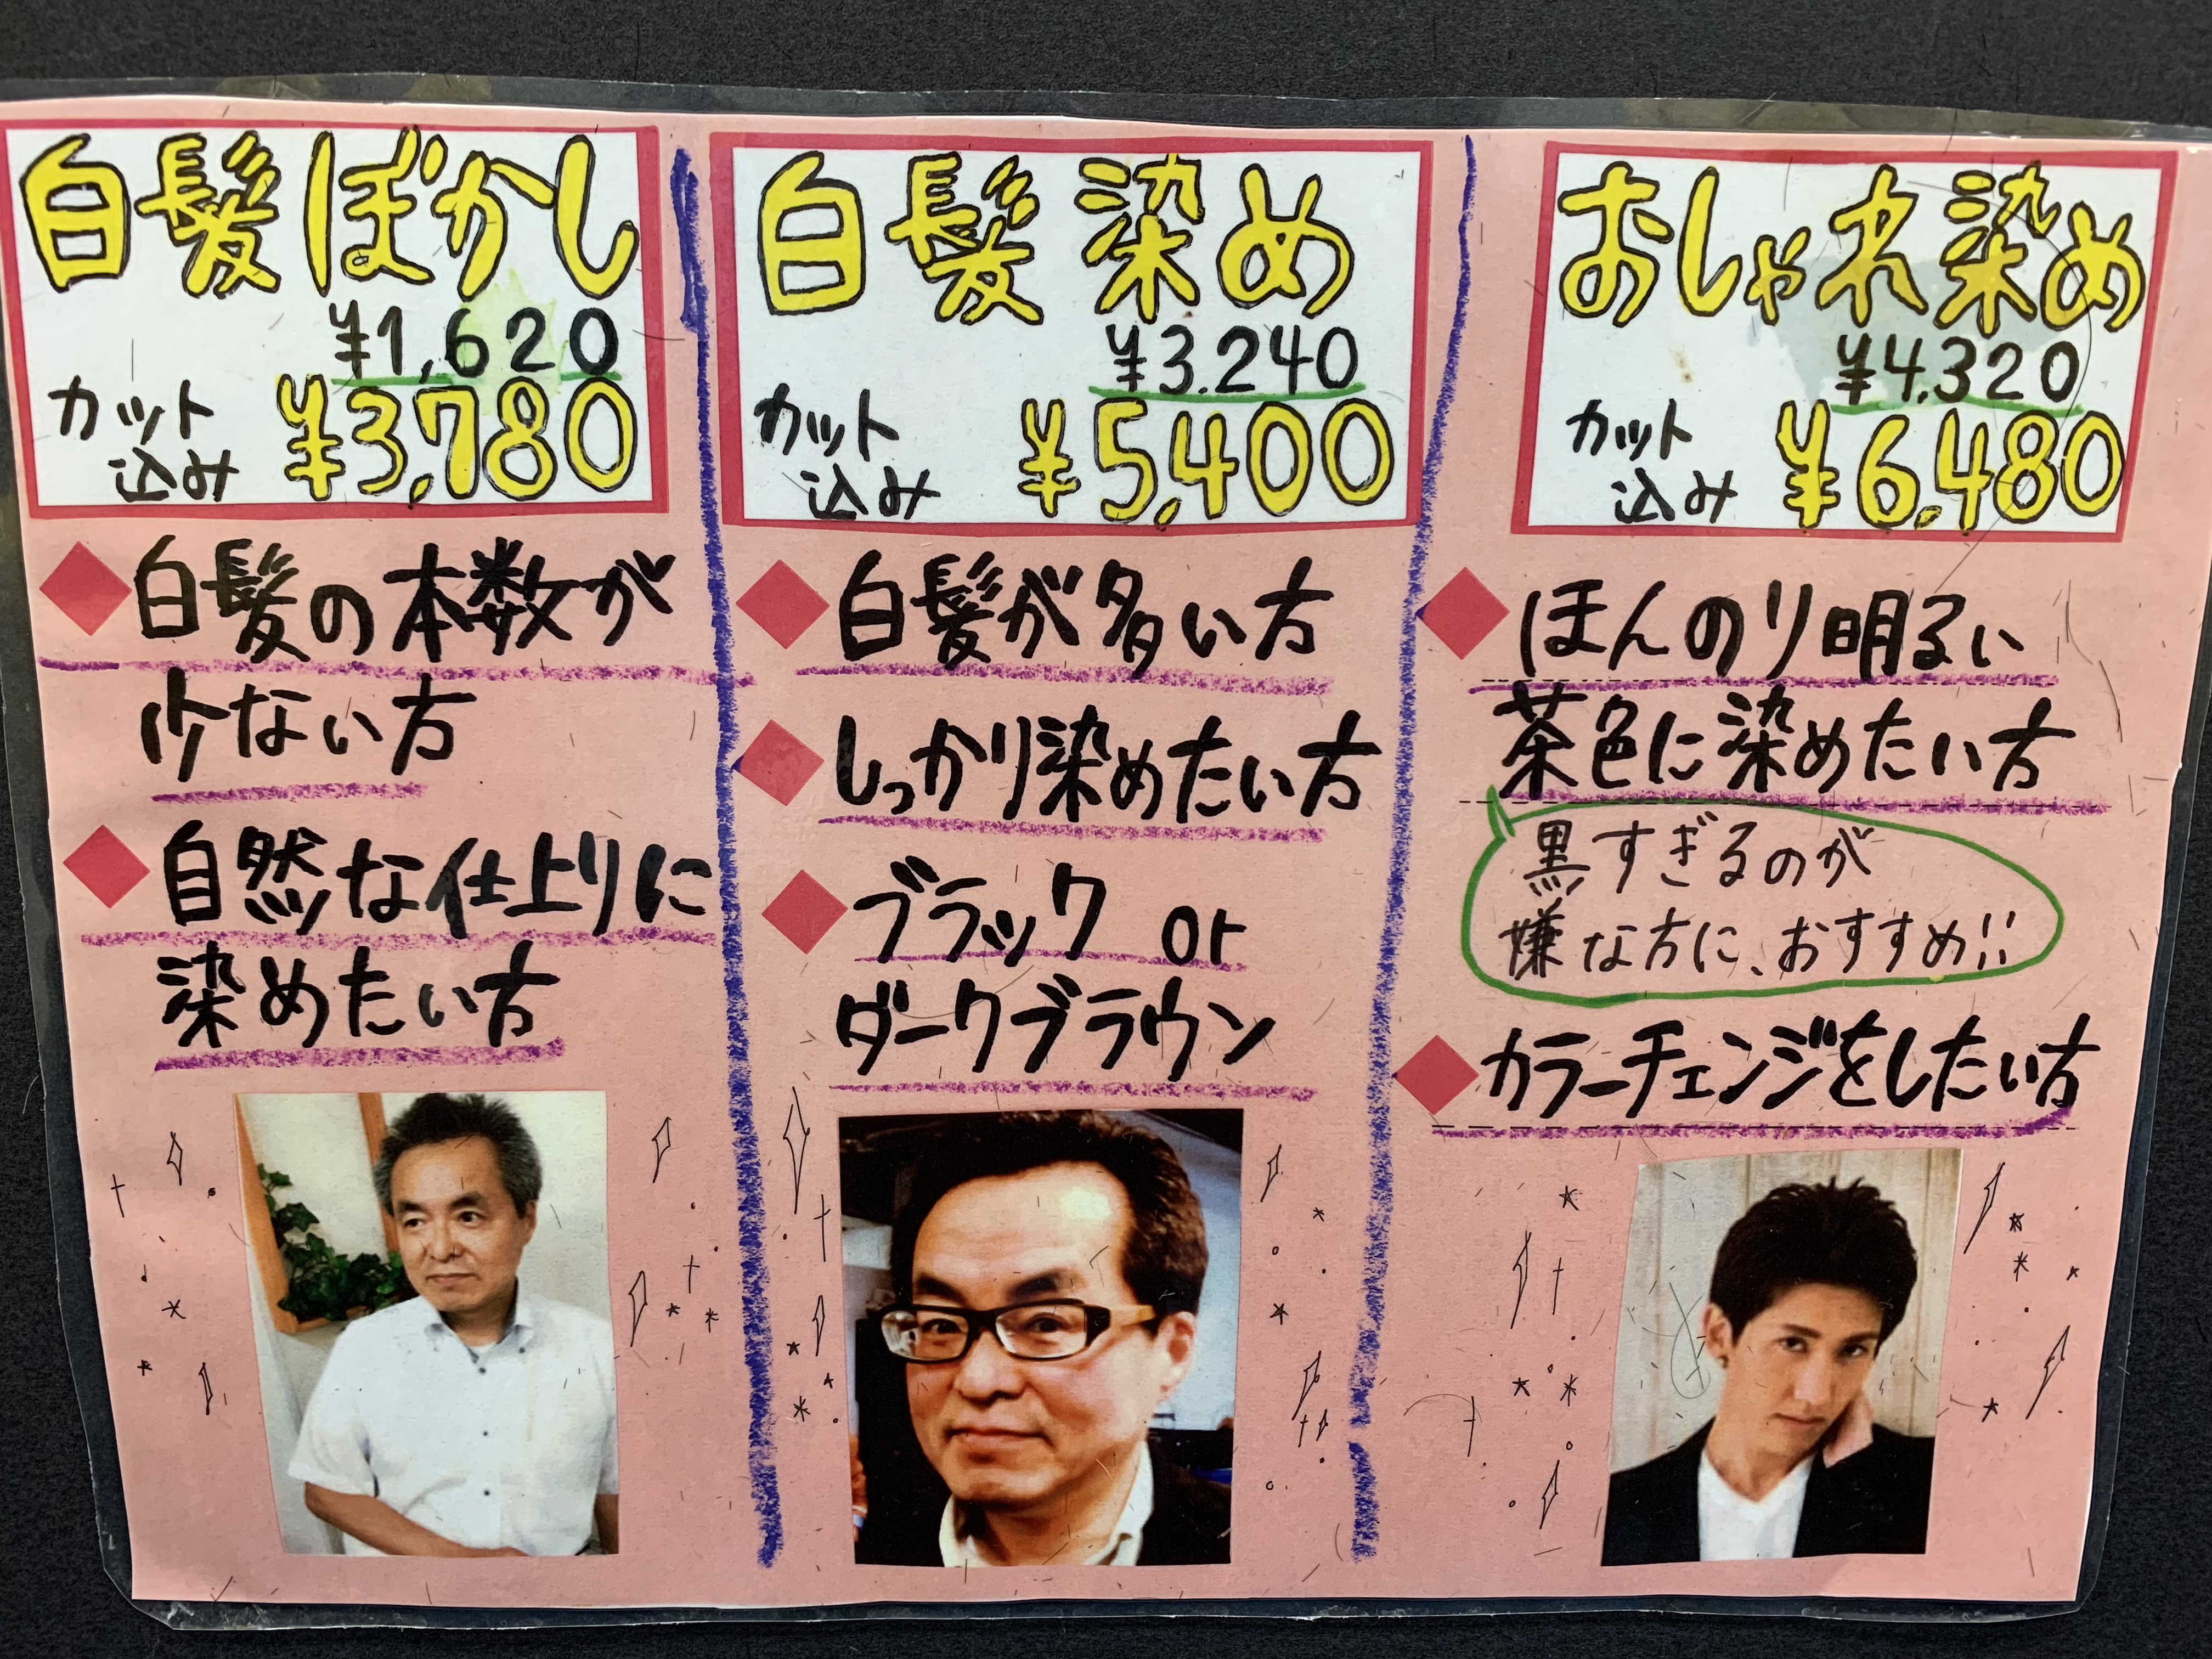 白髪ぼかし
¥1,620
カット
込み ¥3,780
◆白髪の本数が
少ない方
◆自然な仕上りに
染めたい方
白髪染め
¥3.240
カット
込み ¥5,400
◆白髪が多い方
◆しっかり染めたい方
◆ブラック or
ダークブラウン
おしゃれ染め
¥4.320
カット
込み ¥6,480
◆ほんのり明るい
茶色に染めたい方
黒すぎるのが
嫌な方に、おすすめ!!
◆カラーチェンジをしたい方